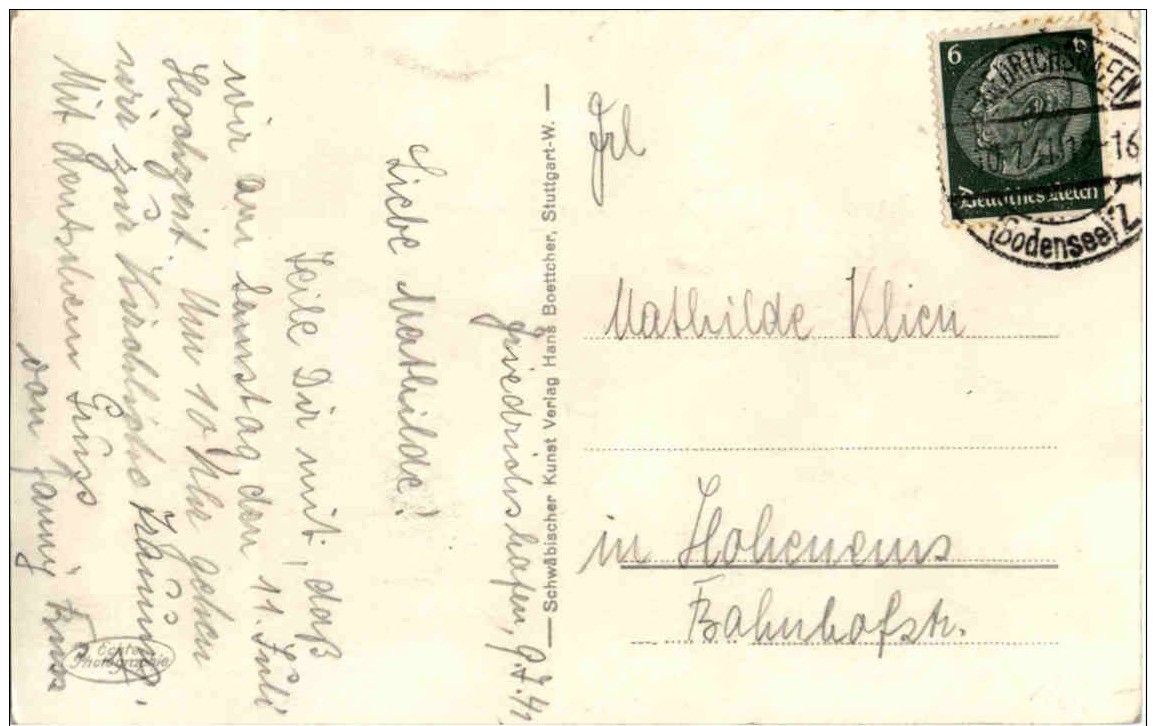 Friedrichshafen, 9.7.41
Liebe Mathilde!
Teile Dir mit, daß
wir am Samstag, den 11. Juli
Hochzeit. Um 10 Uhr gehen
wir zur Kirchliche Trauung.
Mit deutschem Gruß
von Fanny
Schwäbischer Kunst Verlag Hans Boettcher, Stuttgart-W.
Frl
Mathilde Klien
in Hohenems
Bahnhofstr.
6 6
Deutsches Reich
FRIEDRICHSHAFEN
-16
(Bodensee) 2
Photographie